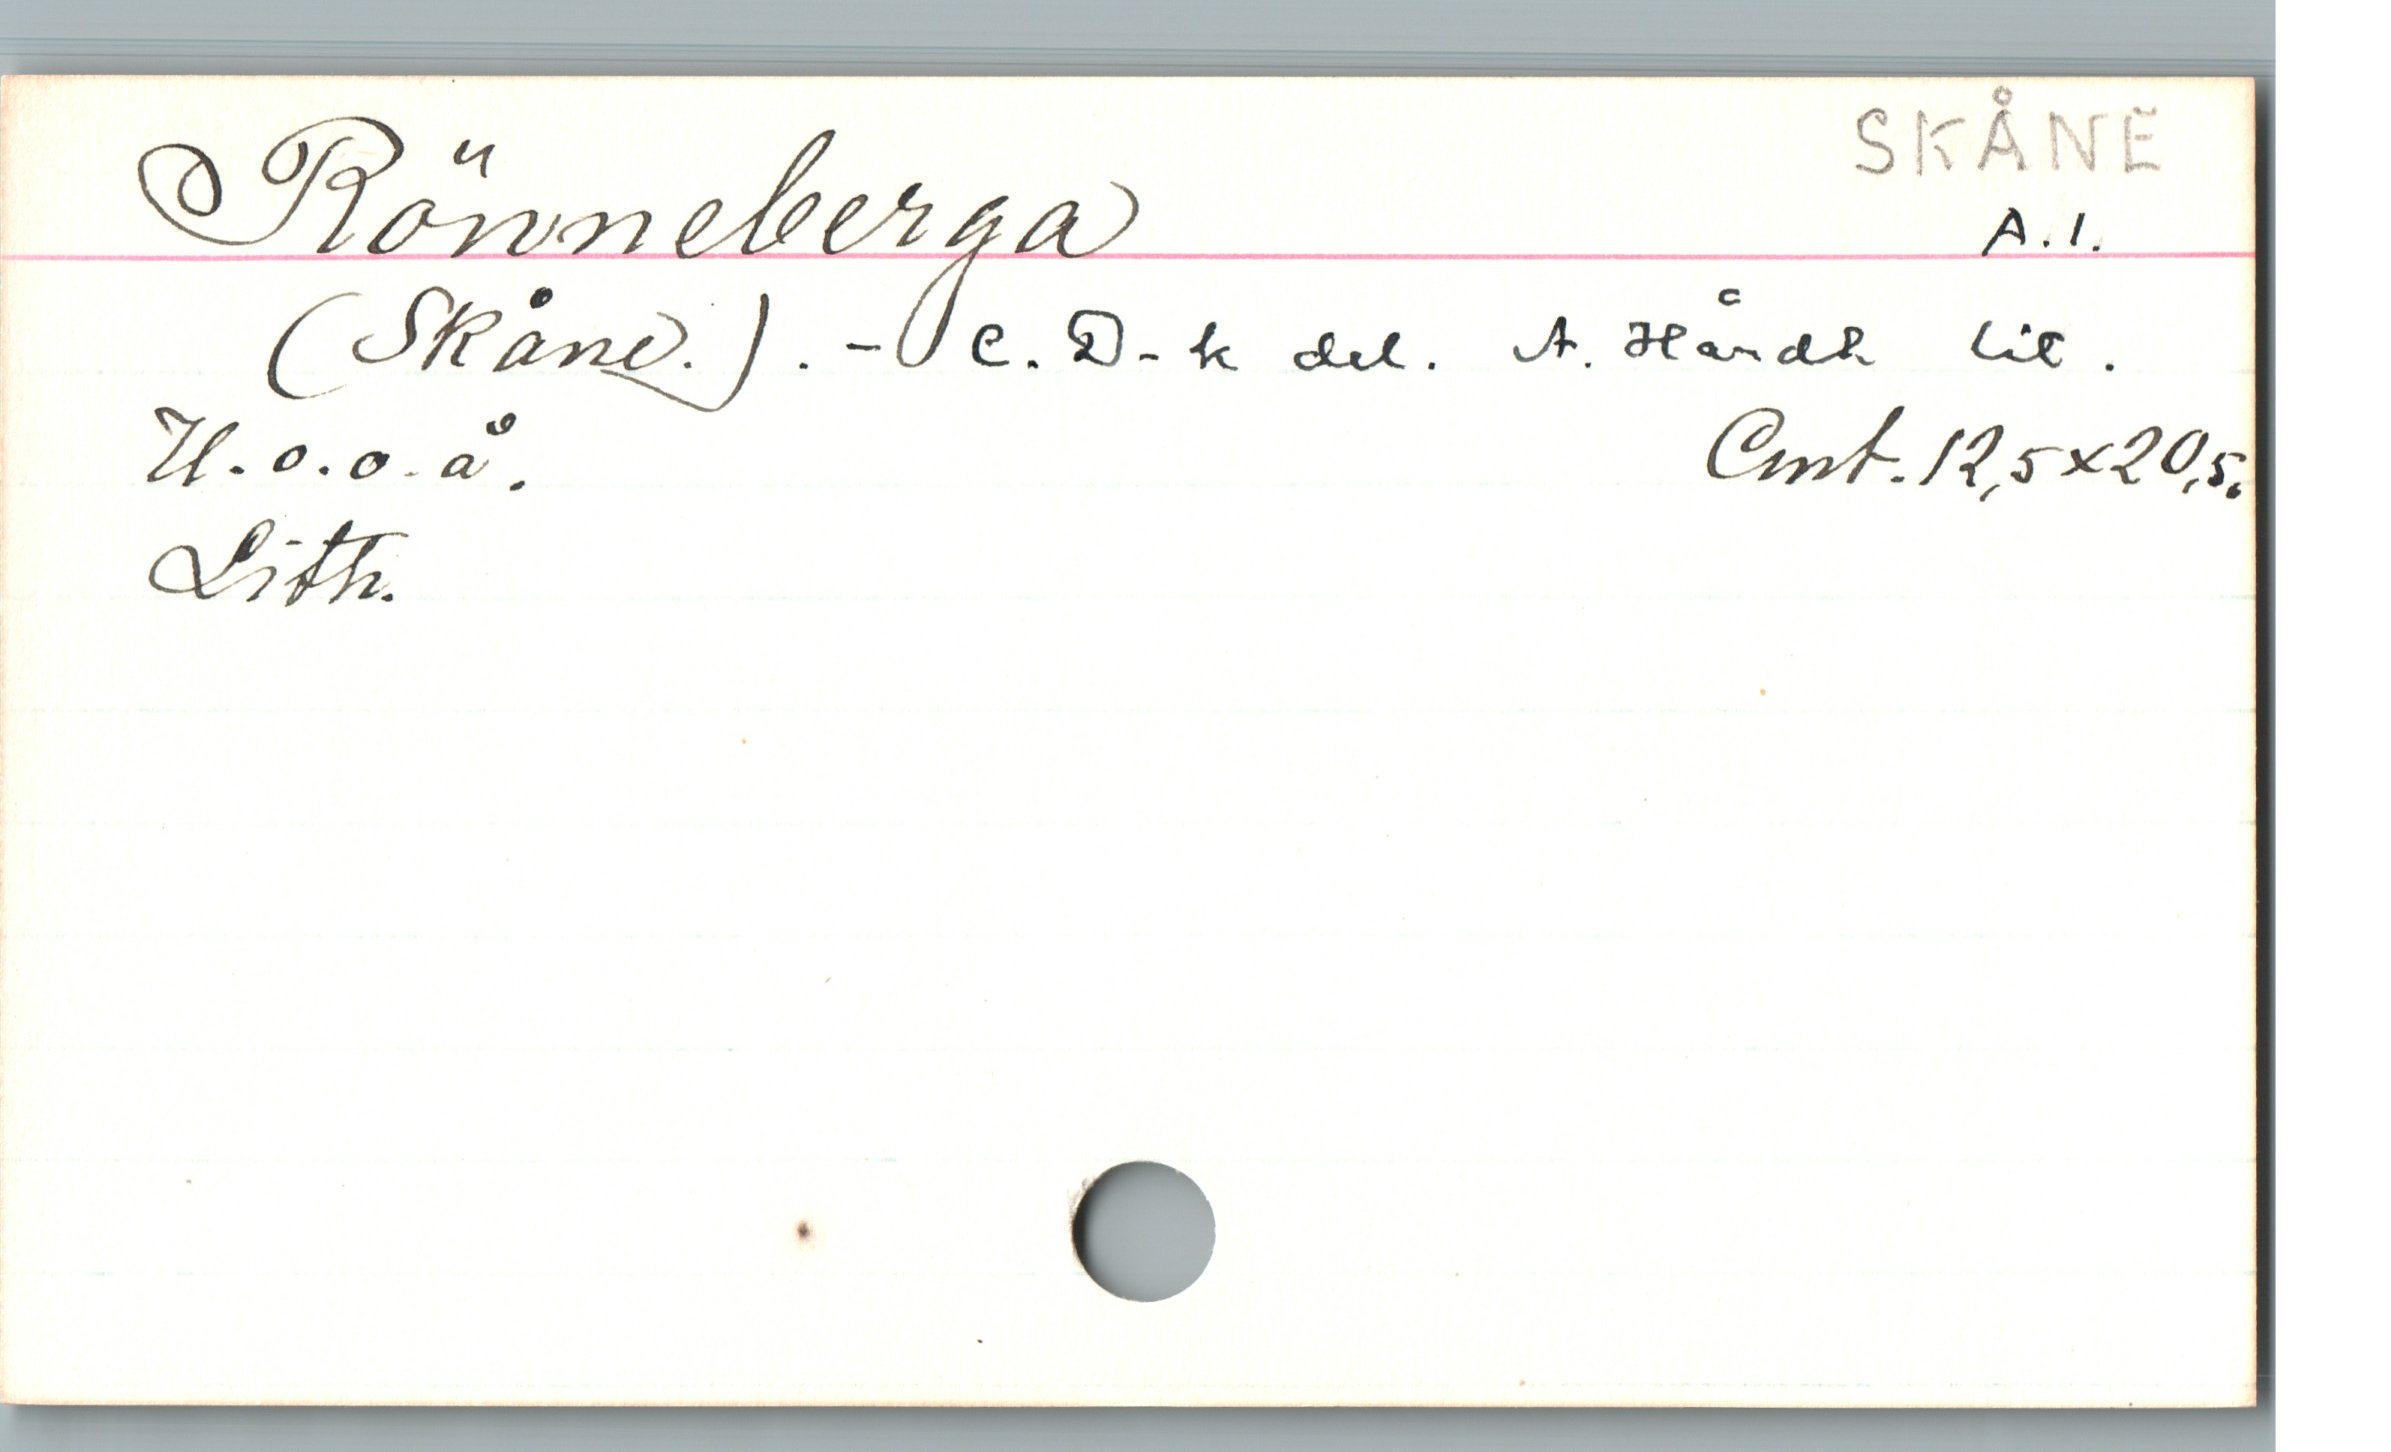 SKÅNE
Rönneberga
A.1.
(Skåne.). - C. D-k del. A. Hårdh lit.
U. o. o. å. Cmt. 12,5x20,5.
Lith.